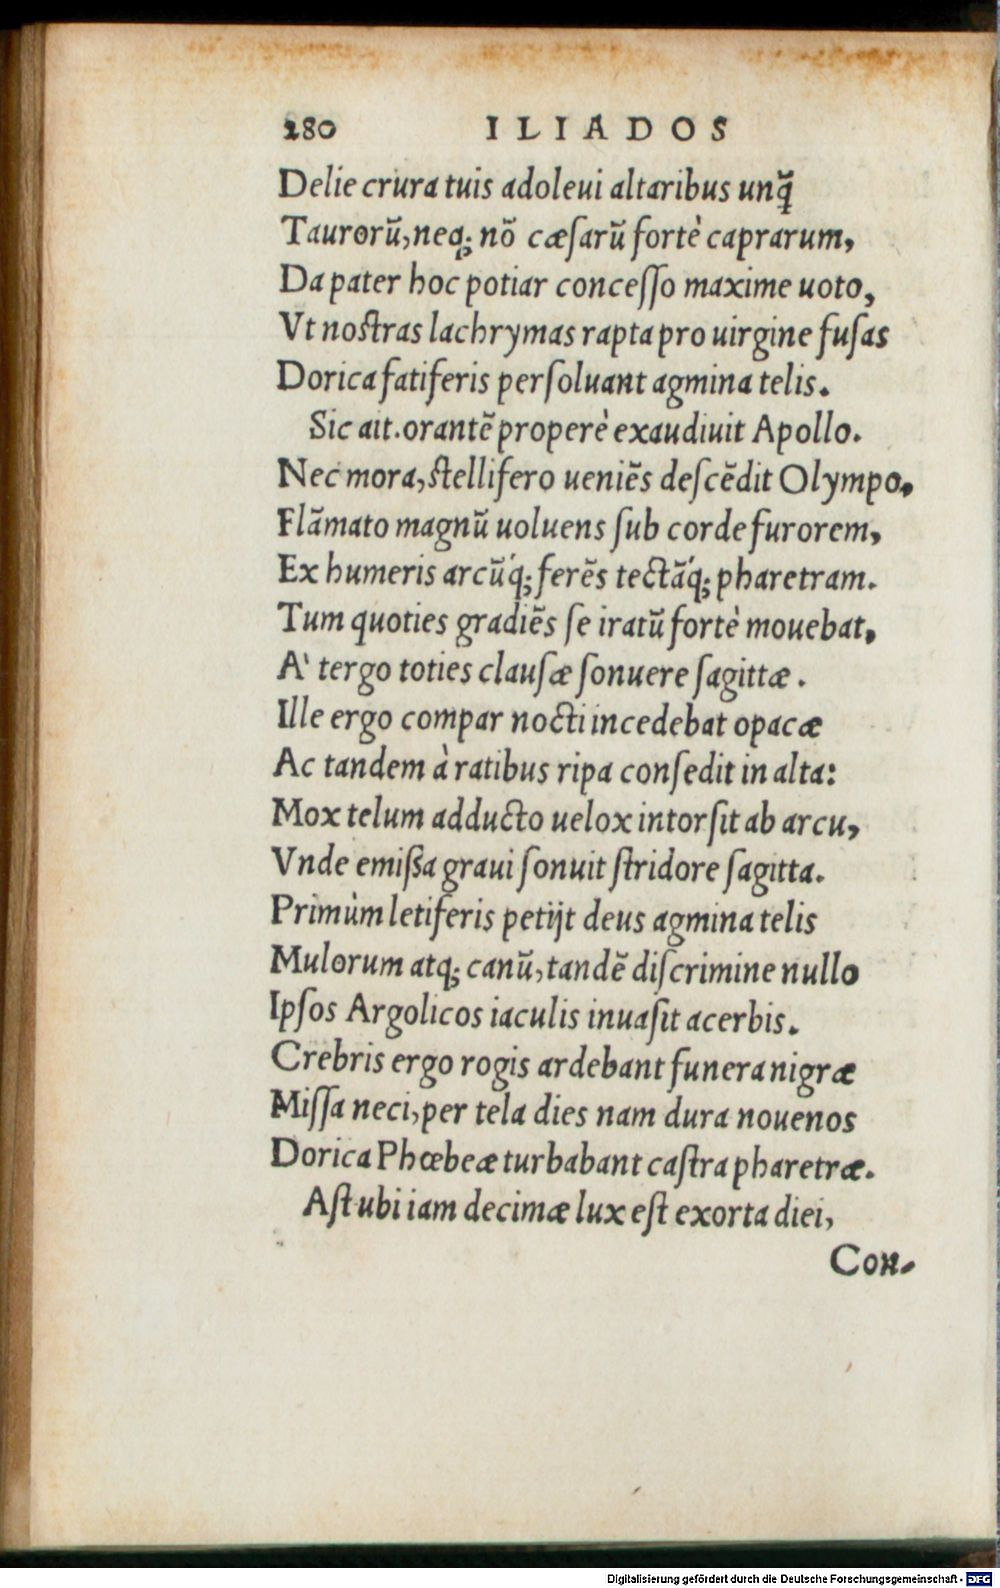 280 ILIADOS
Delie crura tuis adoleui altaribus unq̃
Taurorũ, neq; nõ cæſarũ fortè caprarum,
Da pater hoc potiar conceſſo maxime uoto,
Vt noſtras lachrymas rapta pro uirgine fuſas
Dorica fatiferis perſoluant agmina telis.
Sic ait. orantẽ properè exaudiuit Apollo.
Nec mora, ſtellifero ueniẽs deſcẽdit Olympo,
Flãmato magnũ uoluens ſub corde furorem,
Ex humeris arcũq́; ferẽs tectãq́; pharetram.
Tum quoties gradiẽs ſe iratũ fortè mouebat,
A' tergo toties clauſæ ſonuere ſagittæ.
Ille ergo compar nocti incedebat opacæ
Ac tandem à ratibus ripa conſedit in alta:
Mox telum adducto uelox intorſit ab arcu,
Vnde emißa graui ſonuit ſtridore ſagitta.
Primùm letiferis petijt deus agmina telis
Mulorum atq; canũ, tandẽ diſcrimine nullo
Ipſos Argolicos iaculis inuaſit acerbis.
Crebris ergo rogis ardebant funera nigræ
Miſſa neci, per tela dies nam dura nouenos
Dorica Phœbeæ turbabant caſtra pharetræ.
Aſt ubi iam decimæ lux eſt exorta diei,
Con-
Digitalisierung gefördert durch die Deutsche Forschungsgemeinschaft - DFG